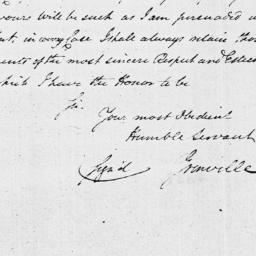 vours will be such as I am persuaded w
nt, in every Case I shall always retain tho
ments of the most sincere Respect and Esteem
which I have the Honor to be
Sir.
Your most Obedient
Humble Servant
(Sign'd Grenville